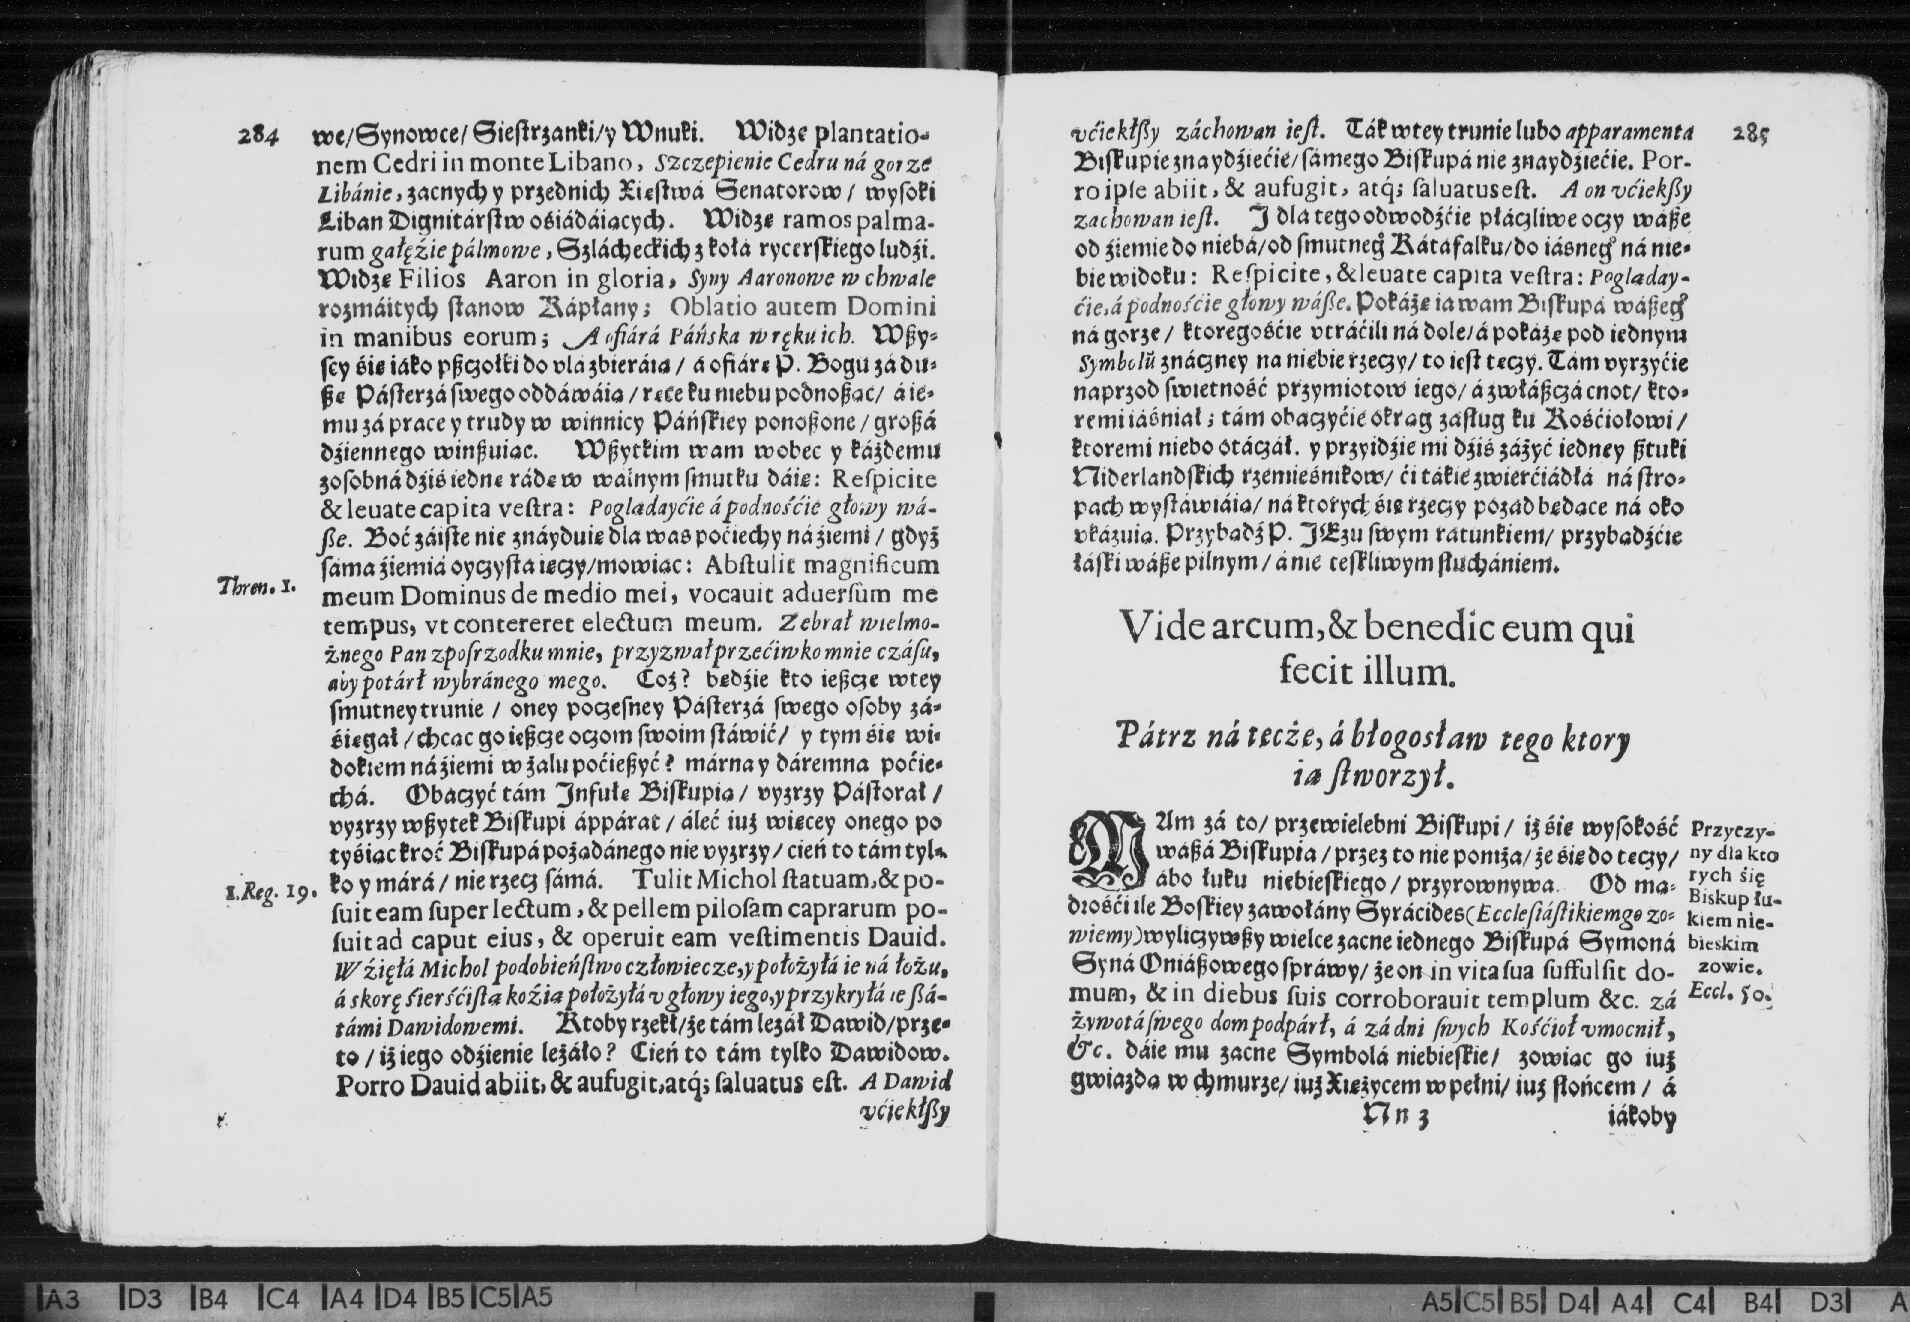 284
we/ Synowce/ Siestrzanki/ y Wnuki. Widzę plantatio-
nem Cedri in monte Libano, Szczepienie Cedru ná gorze
Libánie, zacnych y przednich Xięstwá Senatorow/ wysoki
Liban Dignitárstw ośiádáiących. Widzę ramos palma-
rum gáłęźie pálmowe, Szlácheckich z kołá rycerskiego ludźi.
Widzę Filios Aaron in gloria, Syny Aaronowe w chwale
rozmáitych stanow Kápłany; Oblatio autem Domini
in manibus eorum; A ofiárá Páńska w ręku ich. Wßy-
scy śię iáko pßczołki do vlá zbieráią/ á ofiárę P. Bogu zá du-
ßę Pásterzá swego oddáwáią/ ręce ku niebu podnoßąc/ á ie-
mu zá prace y trudy w winnicy Páńskiey ponoßone/ großá
dźiennego winßuiąc. Wßytkim wam wobec y káżdemu
zosobná dźiś iednę rádę w walnym smutku dáię: Respicite
& leuate capita vestra: Poglądayćie á podnośćie głowy wá-
ße. Boć záiste nie znáyduię dla was poćiechy ná źiemi/ gdyż
sáma źiemiá oyczysta ięczy/ mowiąc: Abstulit magnificum
Thren. 1.
meum Dominus de medio mei, vocauit aduersùm me
tempus, vt contereret electum meum. Zebrał wielmo-
żnego Pan zpośrzodku mnie, przyzwał przećiwko mnie czásu,
aby potárł wybránego mego. Coż? będźie kto ießcze w tey
smutney trunie/ oney poczesney Pásterzá swego osoby zá-
śięgał/ chcąc go ießcze oczom swoim stáwić/ y tym śię wi-
dokiem ná źiemi w żalu poćießyć? márna y dáremna poćie-
chá. Obaczyć tám Infułę Biskupią/ vyzrzy Pástorał/
vyzrzy wßytek Biskupi áppárat/ áleć iuż więcey onego po
tyśiąckroć Biskupá pożądánego nie vyzrzy/ cień to tám tyl-
ko y márá/ nie rzecz sámá. Tulit Michol statuam, & po-
1. Reg. 19.
suit eam super lectum, & pellem pilosam caprarum po-
suit ad caput eius, & operuit eam vestimentis Dauid.
Wźięłá Michol podobieństwo człowiecze, y położyłá ie ná łożu,
á skorę śierśćistą koźią położyłá v głowy iego, y przykryłá ie ßá-
támi Dawidowemi. Ktoby rzekł/ że tám leżáł Dawid/ prze-
to/ iż iego odźienie leżáło? Cień to tám tylko Dawidow.
Porro Dauid abiit, & aufugit, atq; saluatus est. A Dawid
vćiekłßy
285
vćiekłßy záchowan iest. Ták w tey trunie lubo apparamenta
Biskupie znaydźiećie/ sámego Biskupá nie znaydźiećie. Por-
ro ipse abiit, & aufugit, atq; saluatus est. A on vćiekßy
zachowan iest. I dla tego odwodźćie płáczliwe oczy wáße
od źiemie do niebá/ od smutneg° Kátáfalku/ do iásneg° ná nie-
bie widoku: Respicite, & leuate capita vestra: Pogląday-
ćie, á podnośćie głowy wáße. Pokáżę ia wam Biskupá wáßeg°
ná gorze/ ktoregośćie vtráćili ná dole/ á pokáżę pod iednym
Symbolũ znáczney na niebie rzeczy/ to iest tęczy. Tám vyrzyćie
naprzod swietność przymiotow iego/ á zwłáßczá cnot/ kto-
remi iáśniał; tám obaczyćie okrąg zasług ku Kośćiołowi/
ktoremi niebo otáczáł. y przyidźie mi dźiś záżyć iedney ßtuki
Niderlandskich rzemieśnikow/ ći tákie zwierćiádłá ná stro-
pach wystáwiáią/ ná ktorych śię rzeczy pozad będące ná oko
vkázuią. Przybądź P. IEzu swym rátunkiem/ przybądźćie
łáski wáße pilnym/ á nie teskliwym słuchániem.
Vide arcum, & benedic eum qui
fecit illum.
Pátrz ná tęcże, á błogosław tego ktory
ią stworzył.
MAm zá to/ przewielebni Biskupi/ iż śię wysokość
wáßá Biskupia/ przez to nie poniża/ że śię do tęczy/
ábo łuku niebieskiego/ przyrownywa. Od mą-
drośći ile Boskiey záwołány Syrácides (Ecclesiástikiem go zo-
wiemy) wyliczywßy wielce zacne iednego Biskupá Symoná
Syná Oniáßowego spráwy/ że on in vita sua suffulsit do-
mum, & in diebus suis corroborauit templum &c. zá
żywotá swego dom podpárł, á zá dni swych Kośćioł vmocnił,
&c. dáie mu zacne Symbolá niebieskie/ zowiąc go iuż
gwiazdą w chmurze/ iuż Xiężycem w pełni/ iuż słońcem/ á
Przyczy-
ny dla kto
rych śię
Biskup łu-
kiem nie-
bieskim
zowie.
Eccl. 50.
Nn 3
iákoby
A3 D3 B4 C4 A4 D4 B5 C5 A5
A5 C5 B5 D4 A4 C4 B4 D3 A